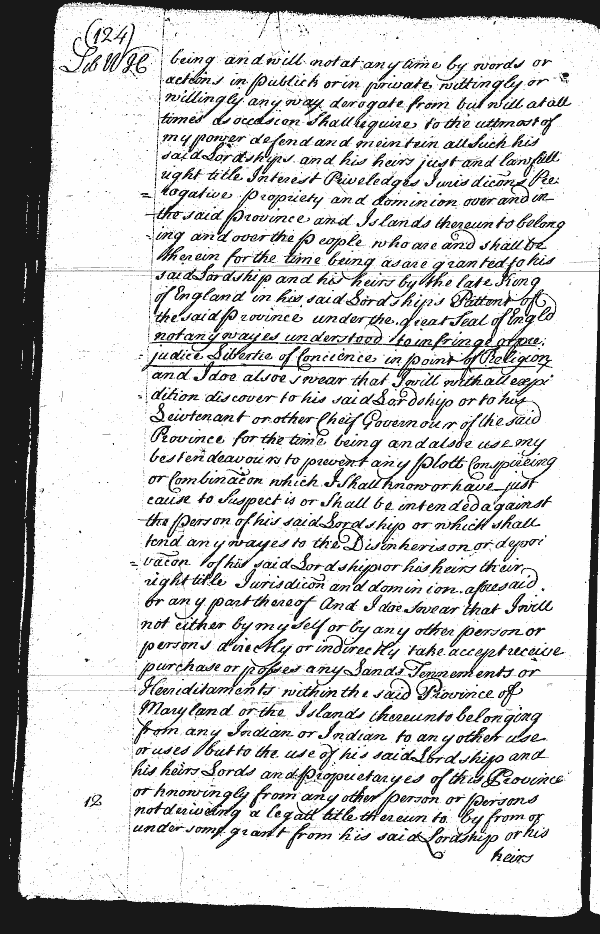 (124)
Lib W J C
being and will not at any time by words or
actions in publick or in private wittingly or
willingly any way derogate from but will at all
times as occasion Shall require to the uttmost of
my power defend and meintein all Such his
said Lordships and his heirs just and lawfull
right title Interest Priveledges Jurisdicōns Pre:
= rogative Propriety and dominion over and in
- the said Province and Islands thereunto belong
- ing and over the People who are and shall be
therein for the time being as are granted to his
said Lordship and his heirs by the late King
of England in his said Lordships Pattent of
the said Province under the great Seal of Engld
not any wayes understood to infringe or pre:
judice Libertie of Concience in point of Religion
and I doe alsoe swear that I will with all expi
- dition discover to his said Lordship or to his
Leiwtenant or other Cheif Governour of the said
Province for the time being and alsoe use my
best endeavours to prevent any Plott Conspireing
or Combinacōn which I Shall know or have just
cause to Suspect is or Shall be intended against
the person of his said Lordship or which shall
tend any wayes to the Disinherison or depri
= vacōn of his said Lordship or his heirs their
right title Jurisdicōn and dominion aforesaid
or any part thereof And I doe Swear that I will
not either by my self or by any other person or
persons directly or indirectly take accept receive
purchase or posses any Lands Tennements or
Hereditaments within the said Province of
Maryland or the Islands thereunto belonging
from any Indian or Indian to any other use
or uses but to the use of his said Lordship and
his heirs Lords and Propryetaryes of this Province
or knowingly from any other person or persons
12
not deriveing a legall title thereunto by from or
under some grant from his said Lordship or his
heirs